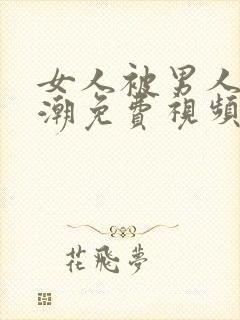 女人被男人
潮免費視頻
花飛夢